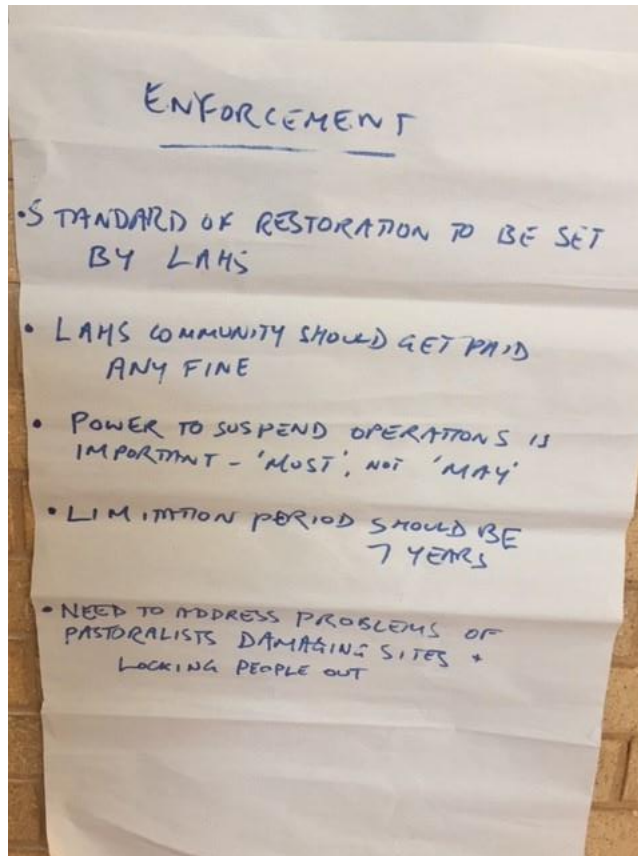 ENFORCEMENT
• STANDARD OF RESTORATION TO BE SET
BY LAHS
• LAHS COMMUNITY SHOULD GET PAID
ANY FINE
• POWER TO SUSPEND OPERATIONS IS
IMPORTANT - 'MUST', NOT 'MAY'
• LIMITATION PERIOD SHOULD BE
7 YEARS
• NEED TO ADDRESS PROBLEMS OF
PASTORALISTS DAMAGING SITES +
LOCKING PEOPLE OUT